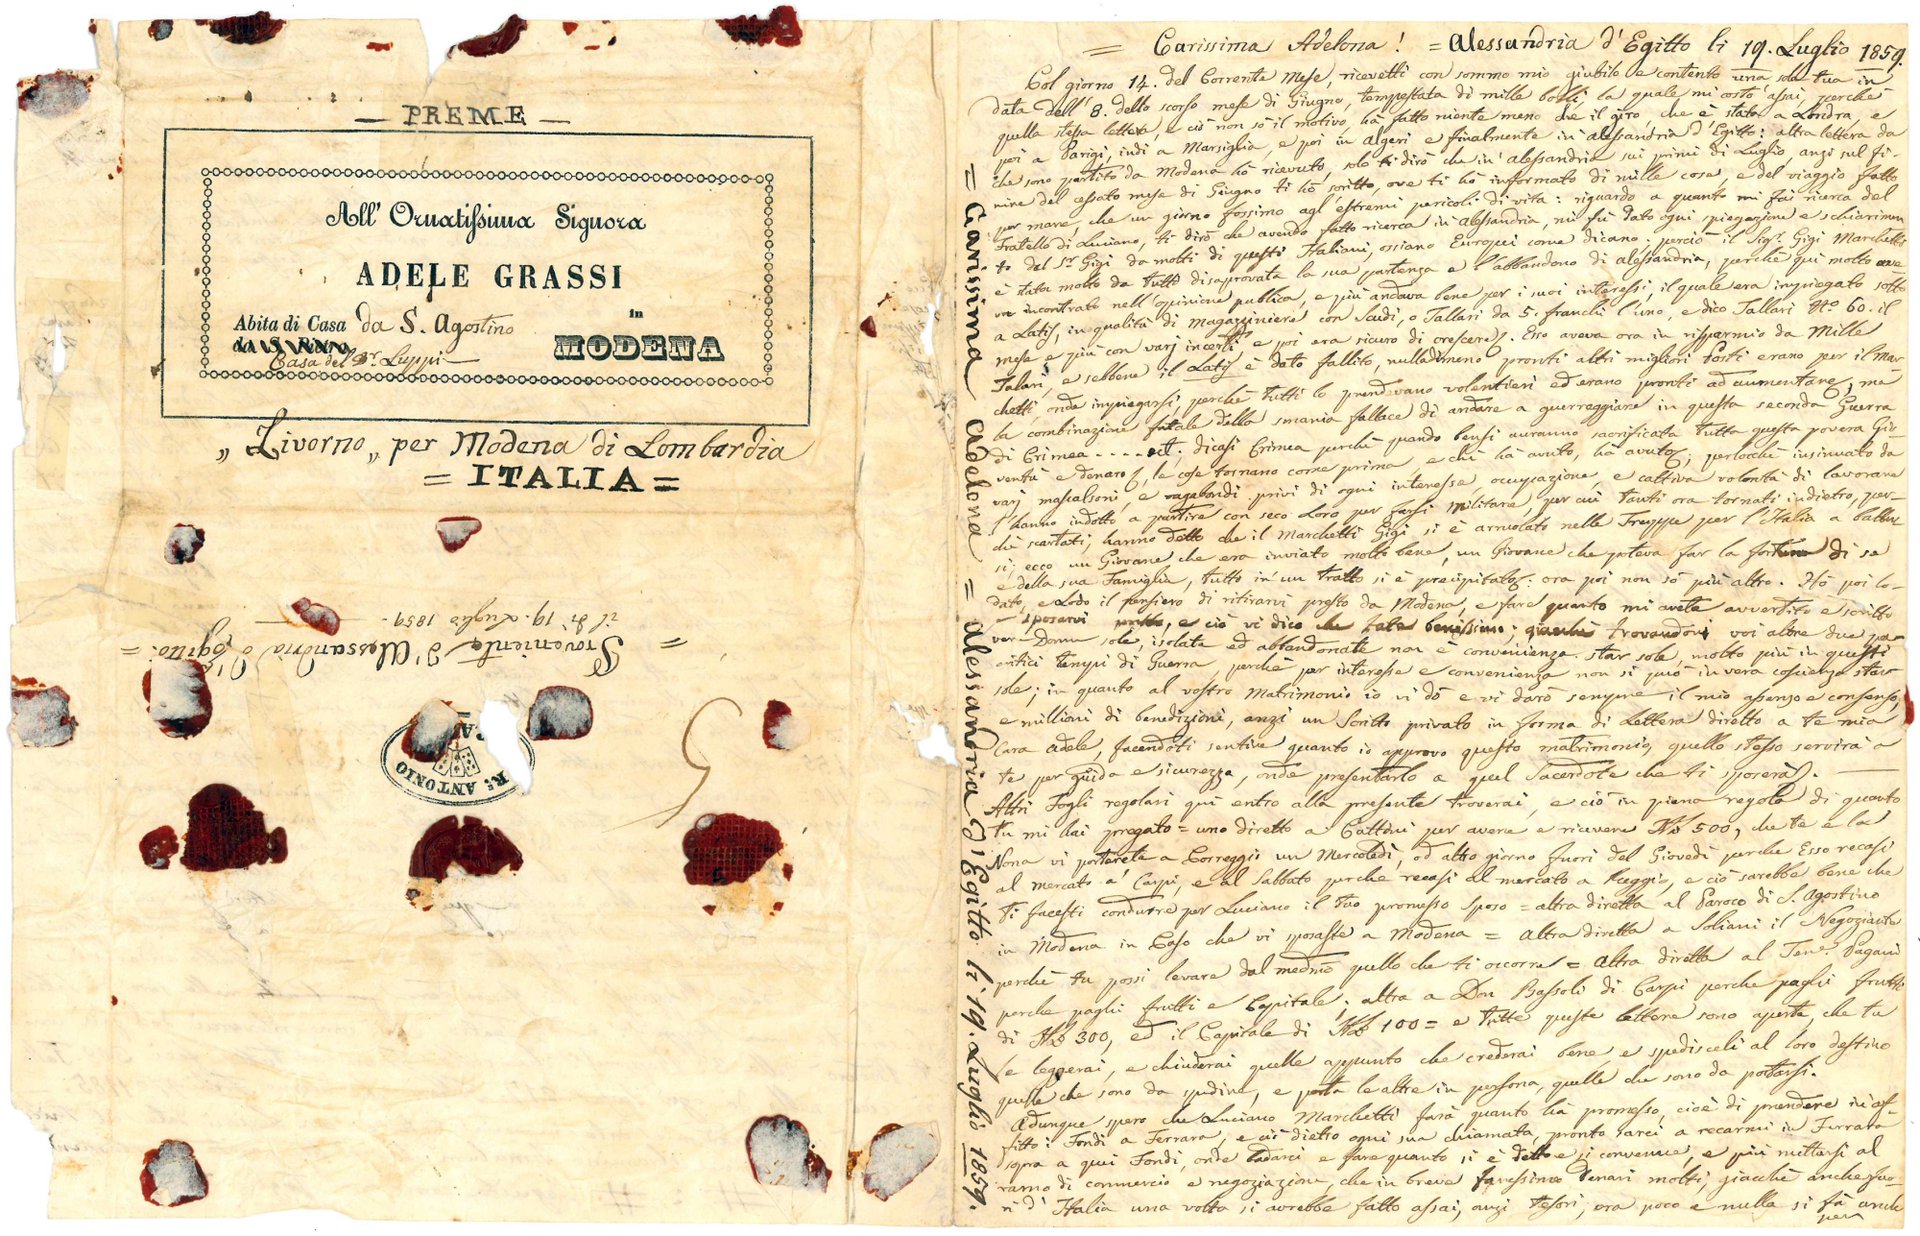 — PREME —
All' Ornatissima Signora
ADELE GRASSI
in
Abita di Casa da S. Agostino
MODENA
Casa del Dr. Luppi —
„ Livorno „ per Modena di Lombardia
= ITALIA =
= Proveniente d'Alessandria d'Egitto: =
il dì 19. Luglio 1859.
R.° ANTONIO
5
= Carissima Adelona = Alessandria d'Egitto lì 19. Luglio 1859.
= Carissima Adelona! = Alessandria d'Egitto lì 19. Luglio 1859.
Col giorno 14. del Corrente Mese, ricevetti con sommo mio giubilo e contento una sola tua in
data dell' 8. dello scorso mese di Giugno, tempestata di mille bolli, la quale mi costò assai, perchè
quella stessa lettera, e ciò non sò il motivo, hà fatto niente meno che il giro, che è stata a Londra, e
poi a Parigi, indi a Marsiglia, e poi in Algeri e finalmente in Alessandria d'Egitto: altra lettera da
che sono partito da Modena hò ricevuto, solo ti dirò che in Alessandria sui primi di Luglio, anzi sul fi-
nire del cessato mese di Giugno ti hò scritto, ove ti hò informato di mille cose, e del viaggio fatto
per mare, che un giorno fossimo agl'estremi pericoli di vita: riguardo a quanto mi fai ricerca del
Fratello di Luciano, ti dirò che avendo fatto ricerca in Alessandria, mi fù dato ogni spiegazione e schiarimen
to del Sr. Gigi da molti di questi Italiani, ossiano Europei come dicano: perciò il Sigr. Gigi Marchetti
è stata molto da tutti disaprovata la sua partenza e l'abbandono di Alessandria, perchè quì molto ave
va incontrato nell'opinione publica, e più andava bene per i suoi interessi, il quale era impiegato sotto
a Latis, in qualità di Magazziniere con Scudi, o Tallari da 5. franchi l'uno, e dico Tallari N° 60. il
mese e più con varj incerti e poi era sicuro di crescere. Esso aveva ora in risparmio da Mille
Talari, e sebbene il Latis è dato fallito, nulladimeno pronti altri migliori Posti erano per il Mar-
chetti onde impiegarsi, perchè tutti lo prendevano volentieri ed erano pronti ad aumentare, ma
la combinazione fatale della smania fallace di andare a guerreggiare in questa seconda Guerra
di Crimea . . . . dicasi Crimea perchè quando bensì avranno sacrificata tutta questa povera Gio-
ventù e denaro, le cose tornano come prima, e chi hà avuto, hà avuto; perlochè insinuato da
varj mascalsoni, e vagabondi privi di ogni interesse, occupazione, e cattiva volontà di lavorare
l'hanno indotto a partire con seco Loro per farsi Militare, per cui tanti ora tornati indietro, per-
chè scartati, hanno detto che il Marchetti Gigi si è arruolato nelle Truppe per l'Italia a batter-
si; ecco un Giovane che era inviato molto bene, un Giovane che poteva far la fortuna di se
e della sua Famiglia, tutto in un tratto si è precipitato: ora poi non sò più altro. Hò poi lo-
dato, e Lodo il pensiero di ritirarvi presto da Modena, e fare quanto mi avete avvertito e scritto
sposarvi presto, e ciò vi dico che fate benissimo; giacchè trovandovi voi altre due po-
vere Donne sole, isolate ed abbandonate non è convenienza star sole, molto più in questi
critici tempi di Guerra, perchè per interesse e convenienza non si può in vera coscienza stare
sole; in quanto al vostro Matrimonio io vi dò e vi darò sempre il mio assenso e consenso,
e millioni di benedizioni, anzi un Scritto privato in forma di Lettera diretto a te mia
Cara Adele, facendoti sentire quanto io approvo questo matrimonio, quello stesso servirà a
te per guida e sicurezza, onde presentarlo a quel Sacerdote che ti sposerà. —
Altri Fogli regolari quì entro alla presente troverai, e ciò in piena regola di quanto
tu mi hai pregato = uno diretto a Cattini per avere e ricevere 500, che te e la
Nona vi porterete a Correggio un Mercoledì, od altro giorno fuori del Giovedì perchè Esso recasi
al mercato a Carpi, e al Sabbato perchè recasi al mercato a Reggio, e ciò sarebbe bene che
ti facesti condurre per Luciano il tuo promesso Sposo = altra diretta al Paroco di S. Agostino
in Modena in Caso che vi sposaste a Modena = Altra diretta a Soliani il Negoziante
perchè tu possi levare dal medmo quello che ti occorre = Altra diretta al Tene Pagani
perchè paghi frutti e Capitale; altra a Don Bassoli di Carpi perchè paghi frutti
di 300, ed il Capitale di 100 = e tutte queste lettere sono aperte, che tu
le leggerai, e chiuderai quelle appunto che crederai bene e spedisceli al loro destino
quelle che sono da spedire, e porta le altre in persona, quelle che sono da portarsi.
Adunque spero che Luciano Marchetti farà quanto hà promesso, cioè di prendere in af-
fitto i Fondi a Ferrara, e ciò dietro ogni sua chiamata, pronto sarei a recarmi in Ferrara
sopra a quei Fondi, onde badarci e fare quanto si è detto e si convenne, e più mettersi al
ramo di commercio e negoziazione, che in breve faressimo denari molti, giacchè anche fuo-
ri d'Italia una volta si avrebbe fatto assai, anzi tesori, ora poco e nulla si fà anche
per